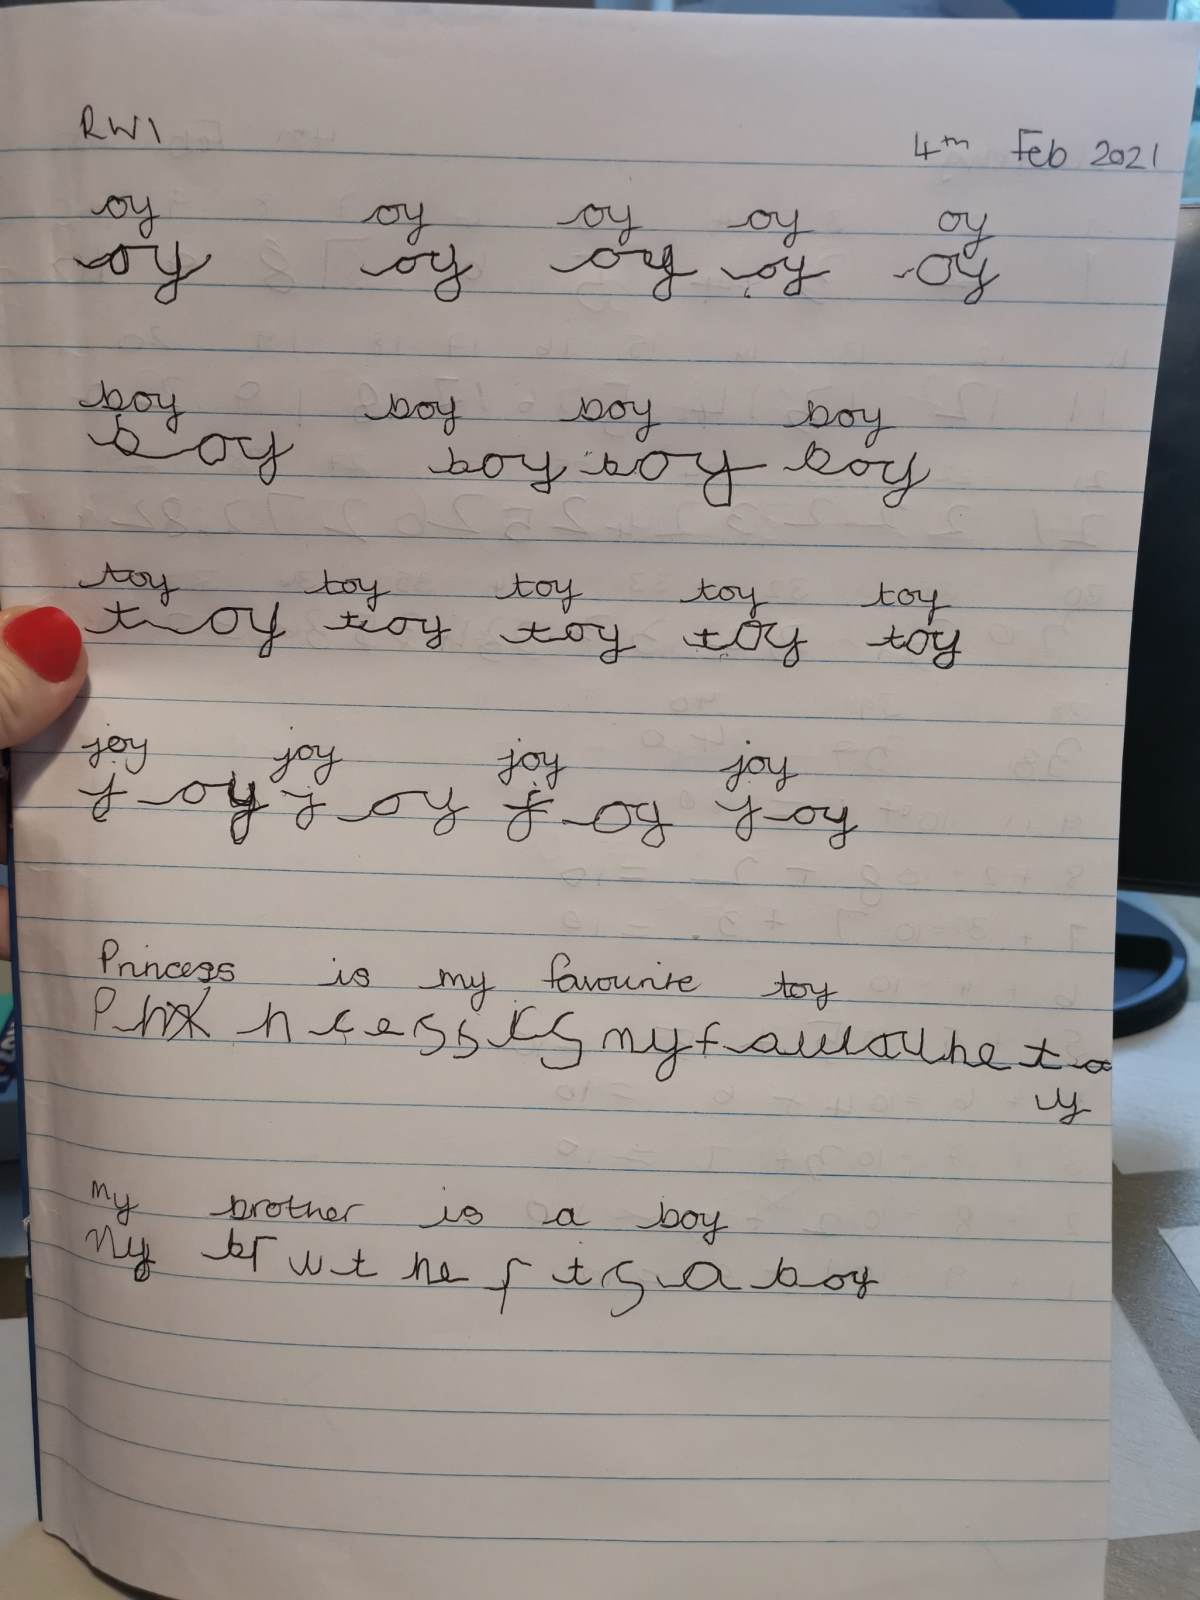 RWI 4th Feb 2021
oy oy oy oy oy
oy oy oy oy oy
boy boy boy boy
boy boy boy boy
toy toy toy toy toy
toy toy toy toy toy
joy joy joy joy
joy joy joy joy
Princess is my favourite toy
is my
y
my brother is a boy
My a boy